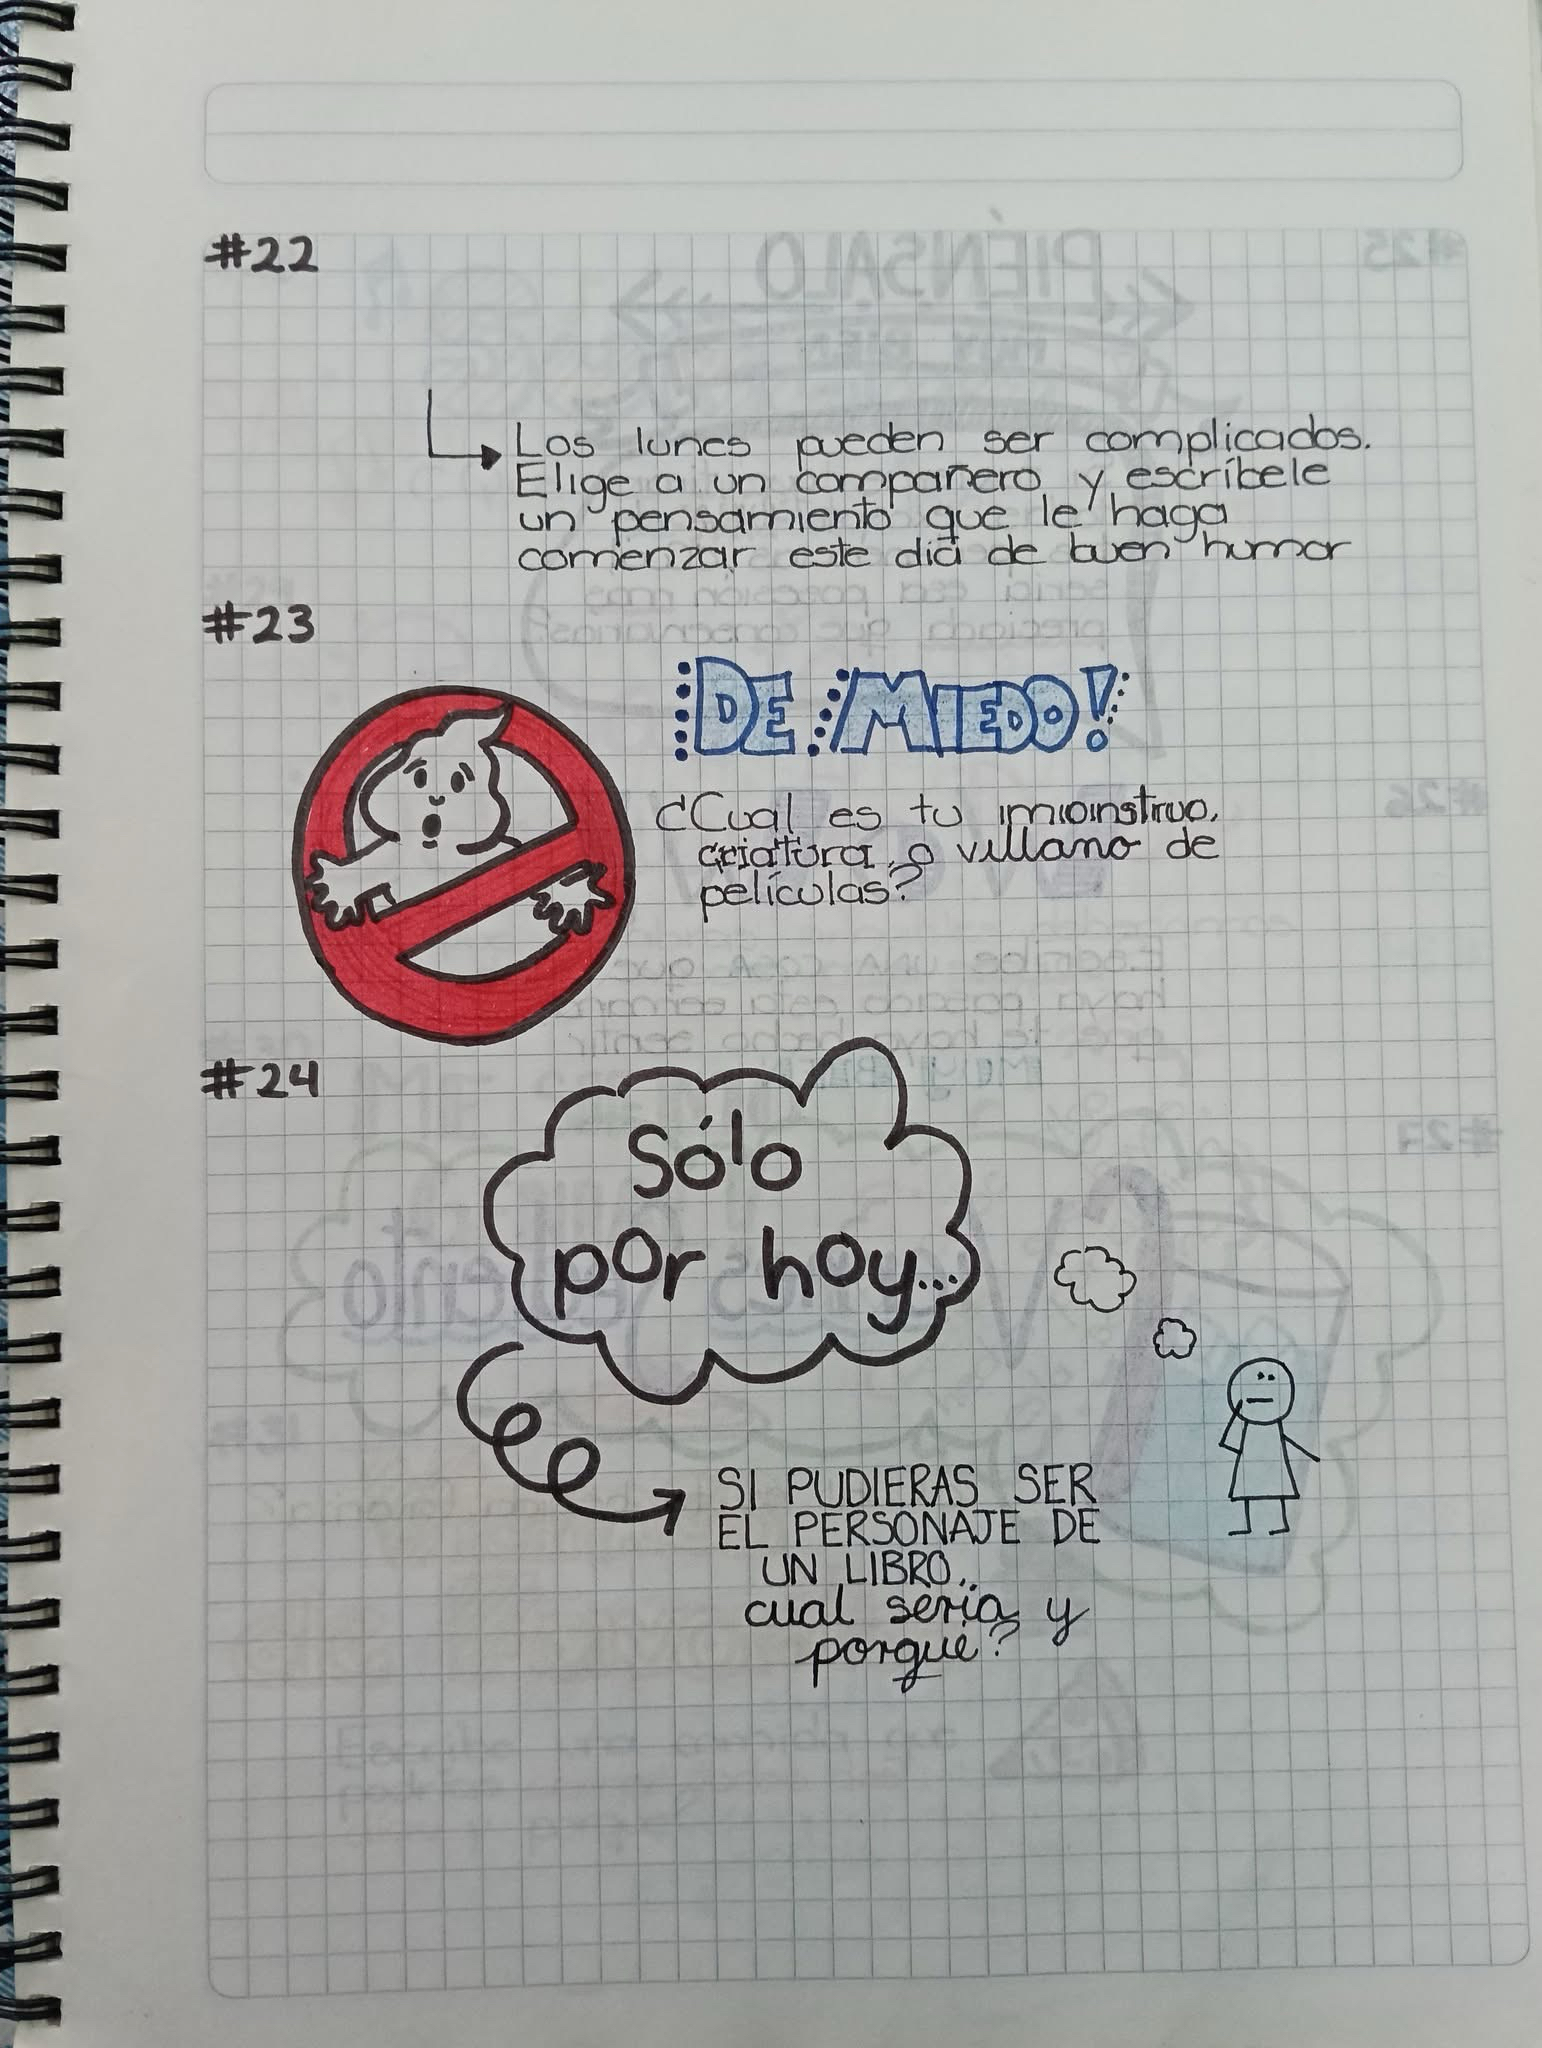 #22
Los lunes pueden ser complicados.
Elige a un compañero y escríbele
un pensamiento que le haga
comenzar este día de buen humor
#23
DE MIEDO!
¿Cual es tu monstruo,
criatura o villano de
películas?
#24
Sólo
por hoy...
SI PUDIERAS SER
EL PERSONAJE DE
UN LIBRO..
cual sería y
porque?